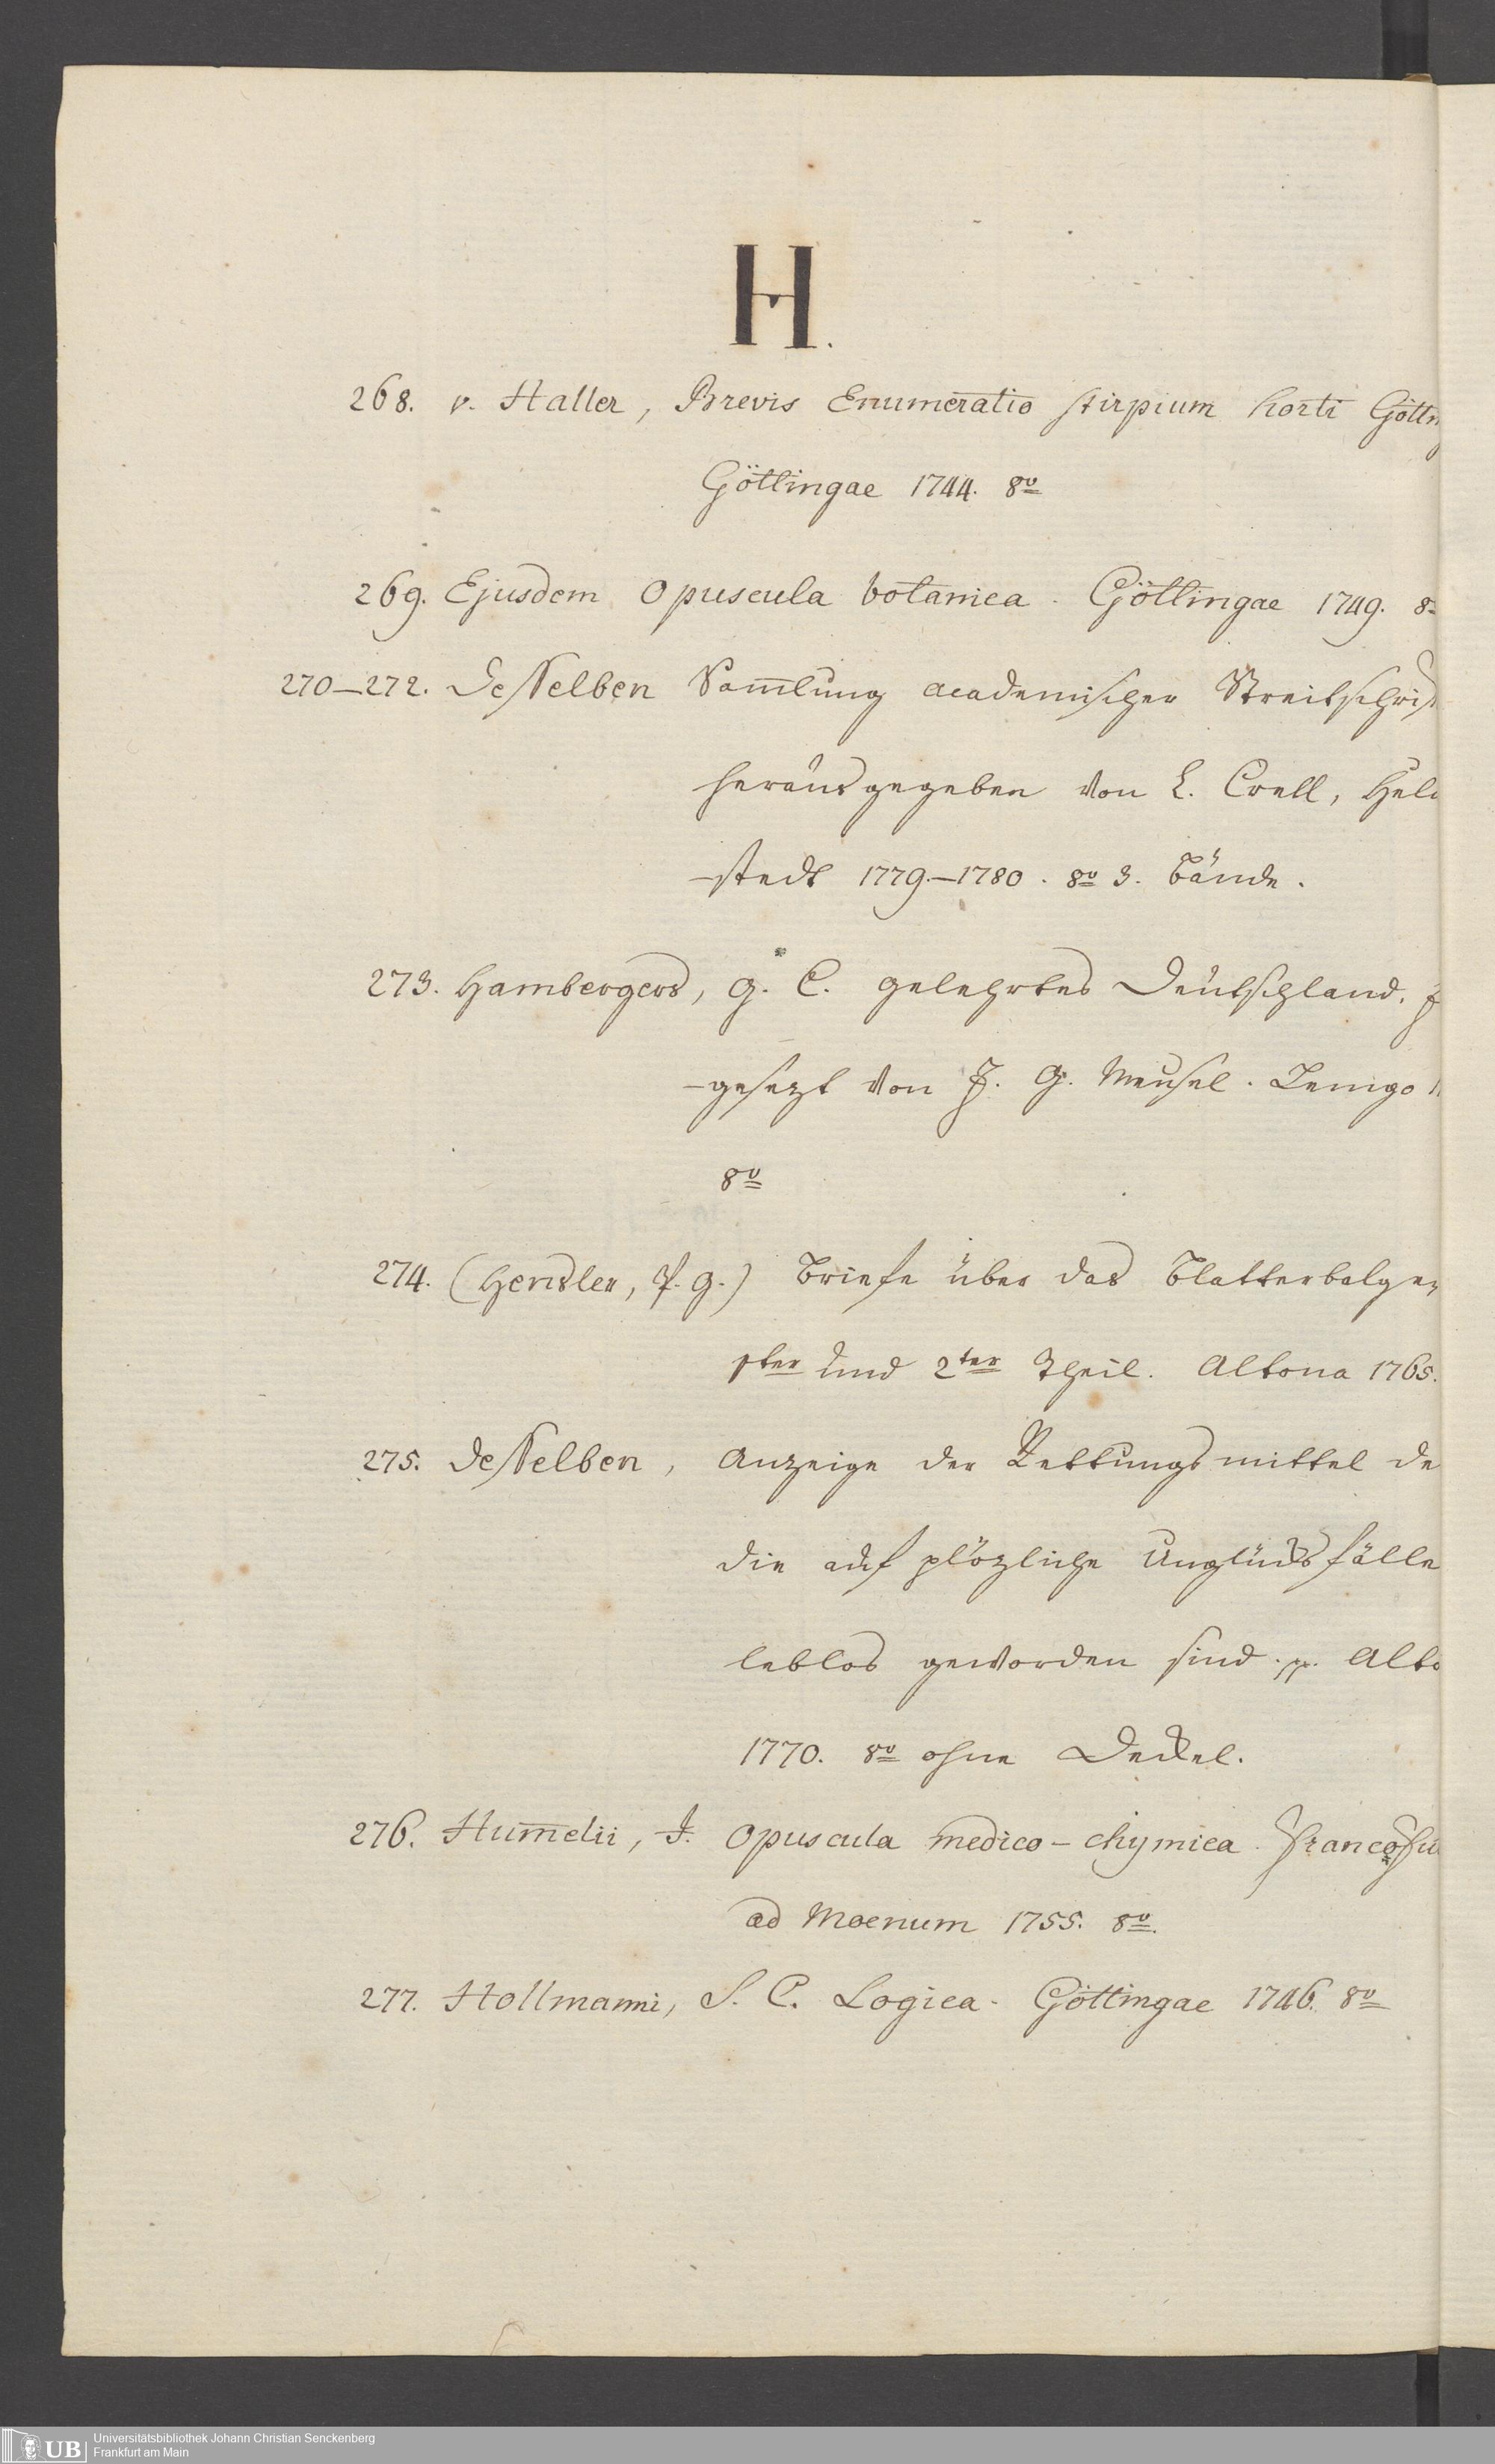 H.
268. v. Haller, Brevis Enumeratio stirpium horti Götting
Göttingae 1744. 8º
269. Ejusdem Opuscula botanica. Göttingae 1749. 8º
270–272. Desselben Sam̅lung academischer Streitschrif
herausgegeben von L. Crell, Helm
-stedt 1779.–1780. 8º 3. Bände.
273. Hambergers, G. C. gelehrtes Deutschland.
-gesezt von J. G. Meusel. Lemgo
8º
274. (Hensler, P. G.) Briefe über das Blatterbelzen
1ter und 2ter Theil. Altona 1765.
275. Desselben, Anzeige der Rettungsmittel de
die auf plözliche Unglücksfälle
leblos geworden sind. pp. Alto
1770. 8º ohne Deckel.
276. Hum̅elii, J. Opuscula medico-chymica. Francofu
ad Moenum 1755. 8º.
277. Hollmanni, S. C. Logica. Göttingae 1746. 8º
UB
Universitätsbibliothek Johann Christian Senckenberg
Frankfurt am Main